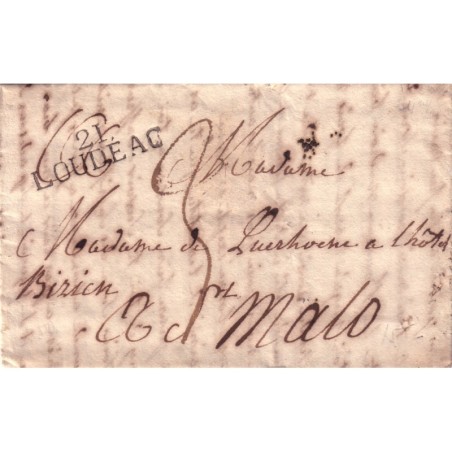 21
LOUDEAC
3
Madame
Madame de Querhoene a l'hôtel
Bizien
A St Malo